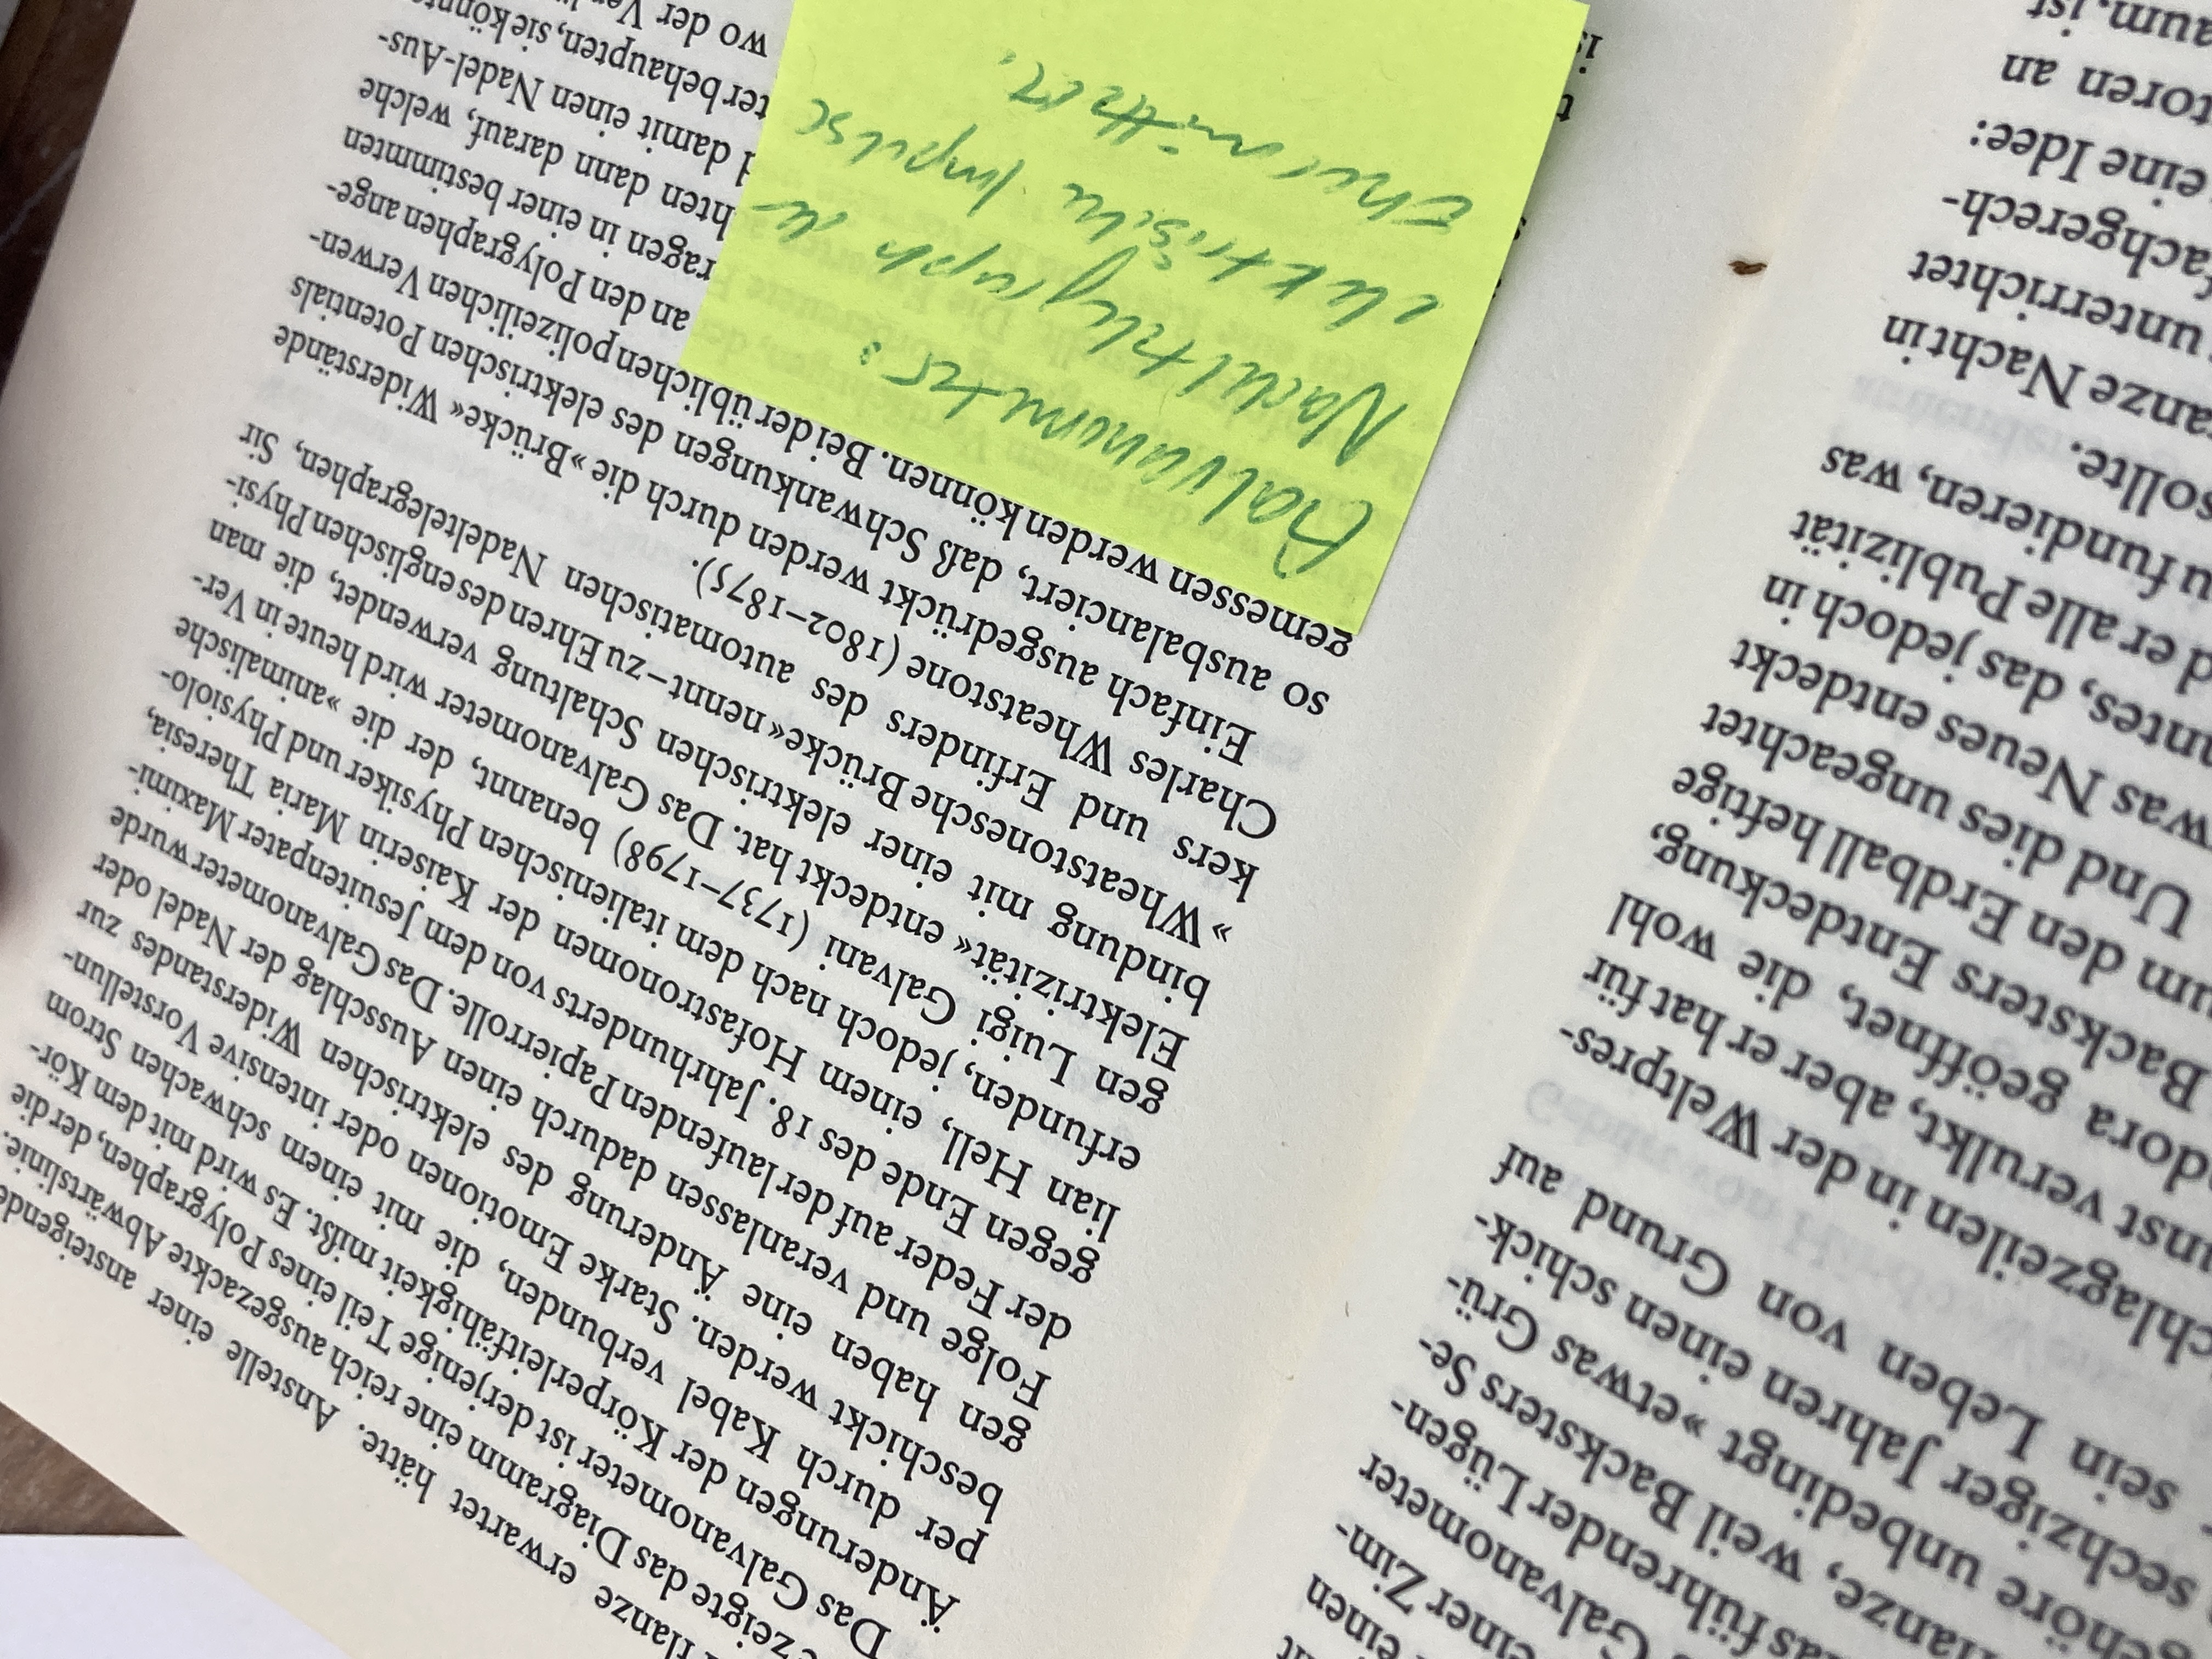 einen
einer Zim-
Galvanometer
das führender Lügen-
lanze, weil Backsters Se-
gehöre unbedingt »etwas Grü-
sechziger Jahren einen schick-
sein Leben von Grund auf
chlagzeilen in der Weltpres-
unst verulkt, aber er hat für
dora geöffnet, die wohl
Backsters Entdeckung,
um den Erdball heftige
Und dies ungeachtet
was Neues entdeckt
antes, das jedoch in
d er alle Publizität
u fundieren, was
sollte.
anze Nacht in
unterrichtet
achgerech-
eine Idee:
toren an
aum, ist
flanze erwartet hätte. Anstelle einer ansteigende
zeigte das Diagramm eine reich ausgezackte Abwärtslinie.
Das Galvanometer ist derjenige Teil eines Polygraphen, der die
Änderungen der Körperleitfähigkeit mißt. Es wird mit dem Kör-
per durch Kabel verbunden, die mit einem schwachen Strom
beschickt werden. Starke Emotionen oder intensive Vorstellun-
gen haben eine Änderung des elektrischen Widerstandes zur
Folge und veranlassen dadurch einen Ausschlag der Nadel oder
der Feder auf der laufenden Papierrolle. Das Galvanometer wurde
gegen Ende des 18. Jahrhunderts von dem Jesuitenpater Maximi-
lian Hell, einem Hofastronomen der Kaiserin Maria Theresia,
erfunden, jedoch nach dem italienischen Physiker und Physiolo-
gen Luigi Galvani (1737–1798) benannt, der die »animalische
Elektrizität« entdeckt hat. Das Galvanometer wird heute in Ver-
bindung mit einer elektrischen Schaltung verwendet, die man
»Wheatstonesche Brücke« nennt – zu Ehren des englischen Physi-
kers und Erfinders des automatischen Nadeltelegraphen, Sir
Charles Wheatstone (1802–1875).
Einfach ausgedrückt werden durch die »Brücke« Widerstände
so ausbalanciert, daß Schwankungen des elektrischen Potentials
gemessen werden können. Bei der üblichen polizeilichen Verwen-
an den Polygraphen ange-
ragen in einer bestimmten
hten dann darauf, welche
d damit einen Nadel-Aus-
ter behaupten, sie könnt
wo der Ver
Galvanometer:
Nadeltelegraph der
elektrische Impulse